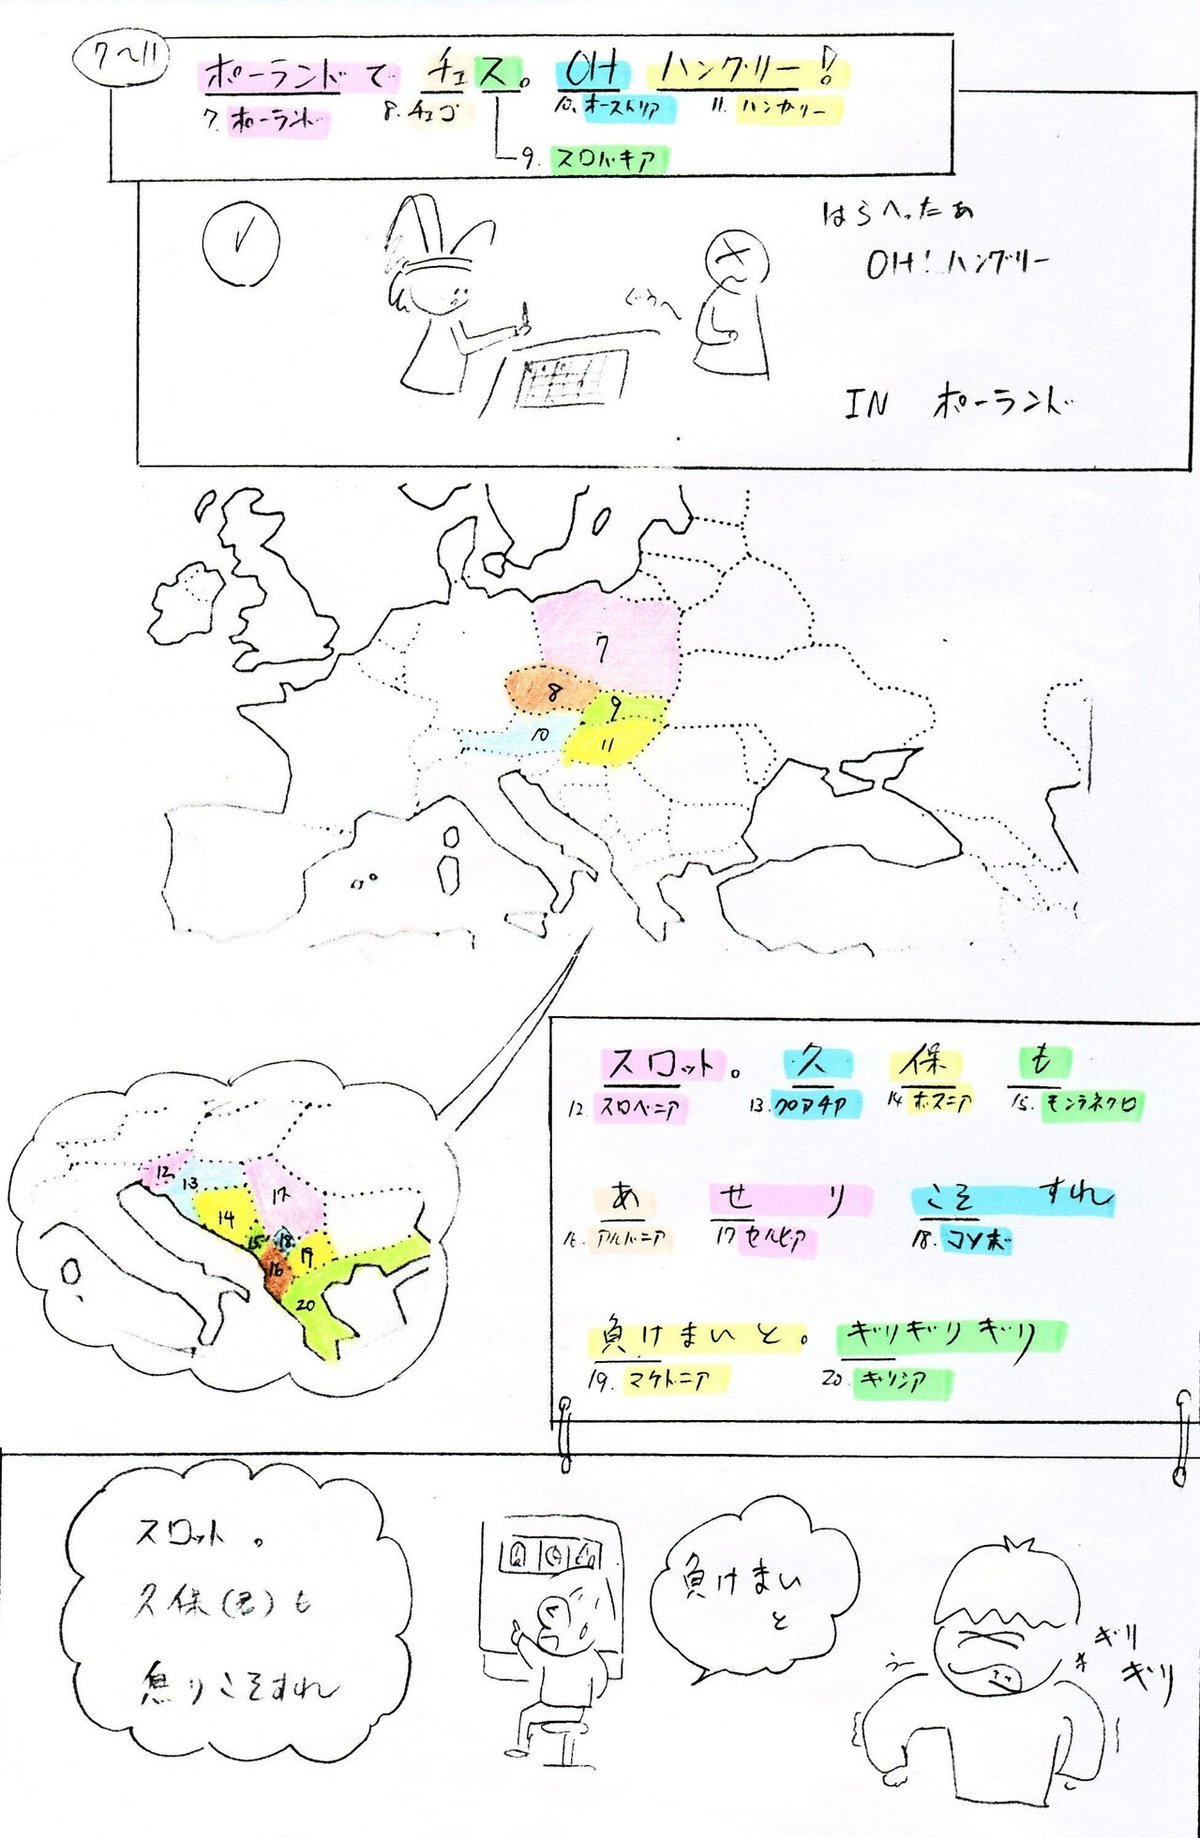 7〜11
ポーランドで チェス。 OH ハングリー!
7. ポーランド 8. チェコ 10. オーストリア 11. ハンガリー
9. スロバキア
はらへったぁ
OH! ハングリー
IN ポーランド
7
8
9
10
11
スロット。 久 保 も
12 スロベニア 13. クロアチア 14. ボスニア 15. モンテネグロ
あ せり こそすれ
16. アルバニア 17 セルビア 18. コソボ
負けまいと。 ギリギリギリ
19. マケドニア 20. ギリシア
12
13
17
14
15 18
16 19
20
スロット。
久保(君)も
焦りこそすれ
負けまい
と
ギリ
ギリ